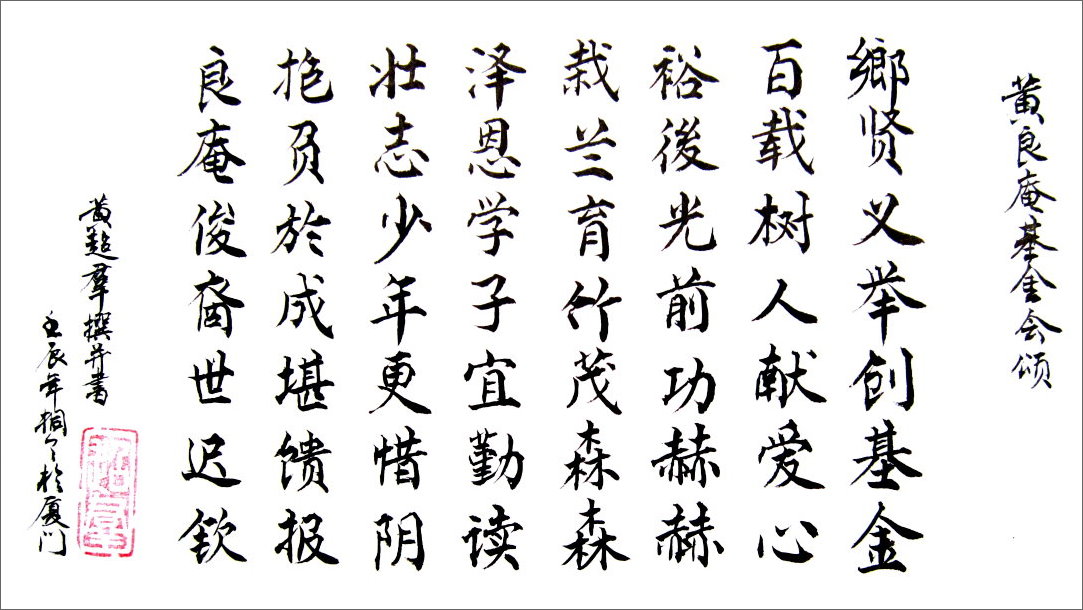 黄良庵基金会颂
鄉贤义举创基金
百载树人献爱心
裕後光前功赫赫
栽兰育竹茂森森
泽恩学子宜勤读
壮志少年更惜阴
抱负於成堪馈报
良庵俊裔世迟钦
黄超群撰并書
壬辰年桐月於厦门